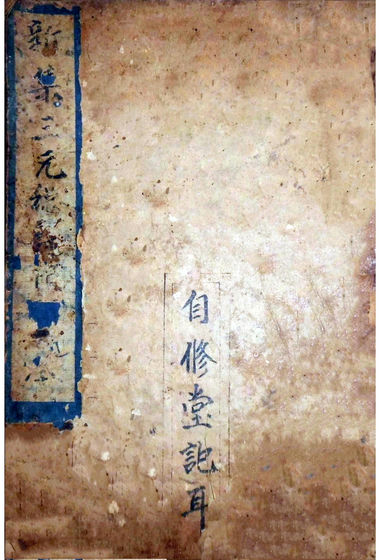 新集三元總
自修堂記耳